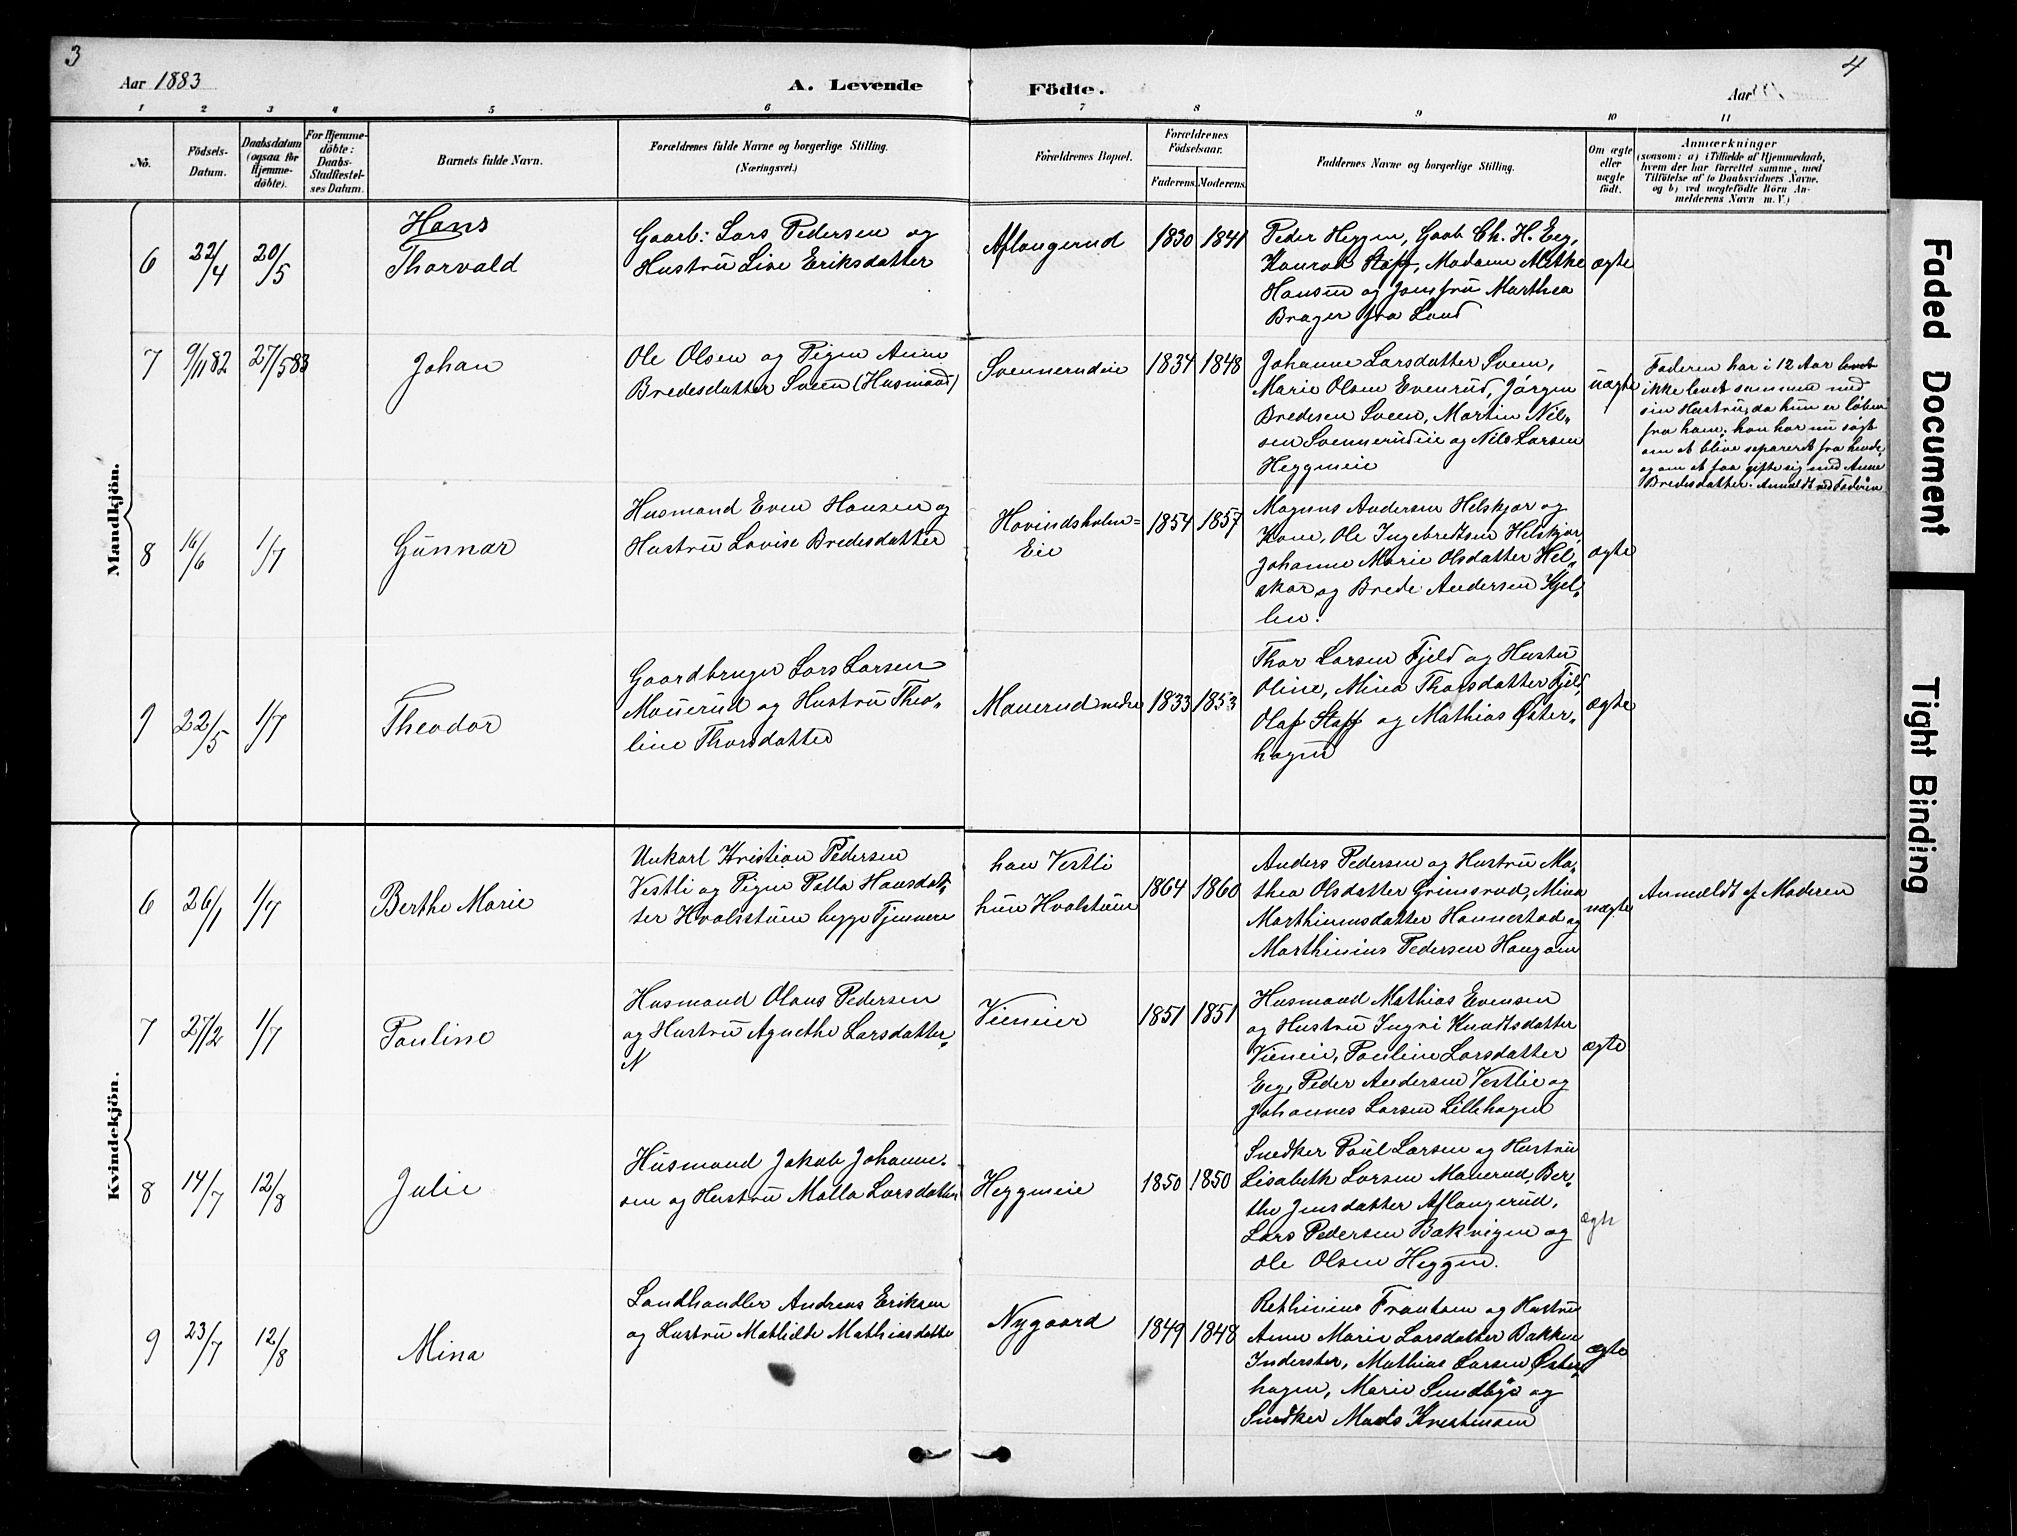 3
4
Aar 1883
A. Levende
Födte.
Aar
1 2 3 4 5 6 7 8 9 10 11
No.
Födsels-
Datum.
Daabsdatum
(ogsaa for
Hjemme-
döbte).
For Hjemme-
döbte:
Daabs-
Stadfæstel-
ses Datum.
Barnets fulde Navn.
Forældrenes fulde Navne og borgerlige Stilling.
(Næringsvei.)
Forældrenes Bopæl.
Forældrenes
Födselsaar.
Faderens.
Moderens.
Faddernes Navne og borgerlige Stilling.
Om ægte
eller
uægte
födt.
Anmærkninger
(saasom: a) i Tilfælde af Hjemmedaab,
hvem der har forrettet samme, med
Tilföielse af to Daabsvidners Navne,
og b) ved uægtefödte Börn An-
melderens Navn m. V.)
Mandkjön.
6
22/4
20/5
Hans
Thorvald
Gaarb: Lars Pedersen og
Hustru Live Eriksdatter
Aflangerud
1830
1841
Peder Heggen, Gaab Ch. H. Eeg,
Konrad Staff, Madame Mathe
Hansen og Jomfru Marthea
Brager fra Land
ægte
7
9/11 82
27/5 83
Johan
Ole Olsen og Pigen Anne
Bredesdatter Sveen (Husmand)
Svennerudeie
1834
1848
Johanne Larsdatter Sveen,
Marie Olsen Evenrud, Jörgen
Bredesen Sveen, Martin Nil-
sen Svennerudeie og Nils Larsen
Heggeneie
uægte
Faderen har i 12 Aar levet
ikke levet sammen med
sin Hustru, da hun er löben
fra ham; han har nu sögt
om at blive separeret fra hende,
og om at faa gifte sig med Anne
Bredesdatter. Anmeldt ved Faderen
8
16/6
1/7
Gunnar
Husmand Even Hansen og
Hustru Lovise Bredesdatter
Hovindsholm=
Eie
1854
1857
Magnus Andersen Helskjar og
Kone, Ole Ingebredtsen Helskjar,
Johanne Marie Olsdatter Hel-
skar og Brede Andersen Kjel-
len.
ægte
9
22/5
1/7
Theodor
Gaardbruger Lars Larsen
Mauerud og Hustru Theo-
line Thorsdatter
Mauerud nedre
1833
1853
Thor Larsen Fjeld og Hustru
Oline, Mina Thorsdatter Fjeld,
Olaf Staff og Mathias Øster-
hagen
ægte
Kvindekjön.
6
26/1
1/4
Berthe Marie
Unkarl Kristian Pedersen
Vestli og Pigen Palla Hansdat-
ter Hvalsstuen begge Tjenere
han Vestli
hun Hvalstuen
1864
1860
Anders Pedersen og Hustru Ma-
thea Olsdatter Grimsrud, Mina
Marthinusdatter Hannestad og
Marthinius Pedersen Haugom
uægte
Anmeldt af Moderen
7
27/2
1/7
Pauline
Husmand Olaus Pedersen
og Hustru Agnethe Larsdatter.
N
Vieneier
1851
1851
Husmand Mathias Evensen
og Hustru Ingri Knudtsdatter
Vieneie, Pauline Larsdatter
Eeg, Peder Andersen Vestlie og
Johannes Larsen Lillehagen
ægte
8
14/7
12/8
Julie
Husmand Jakob Johanne-
sen og Hustru Malla Larsdatter
Heggeneie
1850
1850
Snedker Paul Larsen og Hustru
Lisabeth Larsen Mauerud, Ber-
the Jensdatter Aflangerud,
Lars Pedersen Bakvigen og
Ole Olsen Heggen.
ægte
9
23/7
12/8
Mina
Landhandler Andreas Eriksen
og Hustru Mathilde Mathiasdatter
Nygaard
1849
1848
Rethinius Frantsen og Hustru
Anne Marie Larsdatter Bakken
Inderster, Mathias Larsen Øster-
hagen, Marie Sundbye og
Snedker Mads Krestensen
ægte
Faded Document
Tight Binding